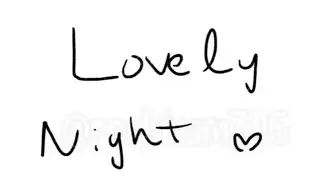 Lovely
Night ♡